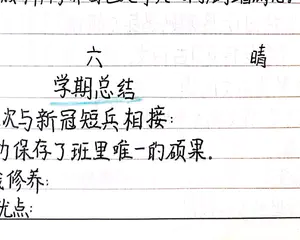 六 晴
学期总结
次与新冠短兵相接:
力保存了班里唯一的硕果.
修养:
优点: